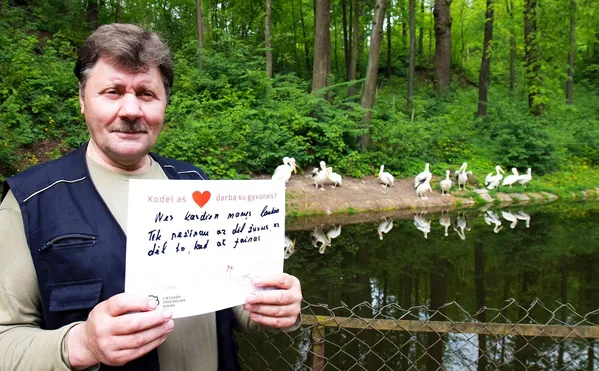 Kodėl aš ❤ darbą su gyvūnais?
Nes kardion manys laukia
Tik nežinau ar dėl žuvies, ar
dėl to, kad aš fainas
LIETUVOS
ZOOLOGIJOS
SODAS